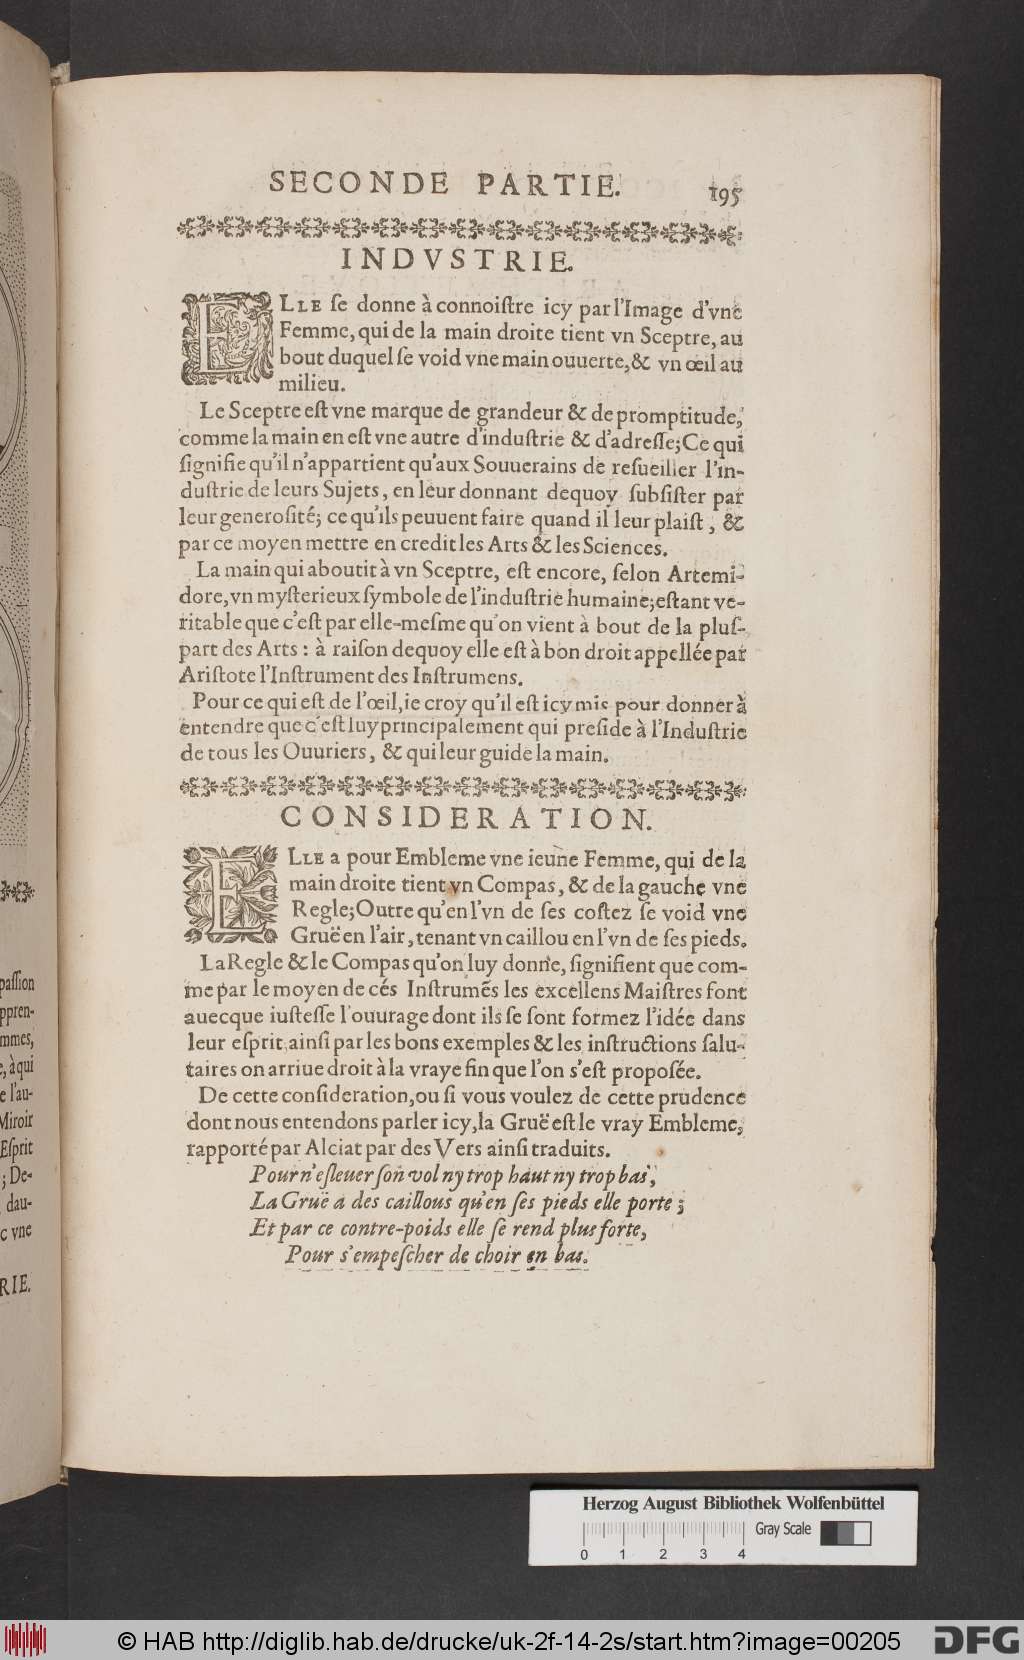 SECONDE PARTIE. 195
INDVSTRIE.
ELLE ſe donne à connoiſtre icy par l'Image d'vne
Femme, qui de la main droite tient vn Sceptre, au
bout duquel ſe void vne main ouuerte, & vn œil au
milieu.
Le Sceptre eſt vne marque de grandeur & de promptitude,
comme la main en eſt vne autre d'induſtrie & d'adreſſe; Ce qui
ſignifie qu'il n'appartient qu'aux Souuerains de reſueiller l'in-
duſtrie de leurs Sujets, en leur donnant dequoy ſubſiſter par
leur generoſité; ce qu'ils peuuent faire quand il leur plaiſt, &
par ce moyen mettre en credit les Arts & les Sciences.
La main qui aboutit à vn Sceptre, eſt encore, ſelon Artemi-
dore, vn myſterieux ſymbole de l'induſtrie humaine; eſtant ve-
ritable que c'eſt par elle-meſme qu'on vient à bout de la pluſ-
part des Arts: à raiſon dequoy elle eſt à bon droit appellée par
Ariſtote l'Inſtrument des Inſtrumens.
Pour ce qui eſt de l'œil, ie croy qu'il eſt icy mis pour donner à
entendre que c'eſt luy principalement qui preſide à l'Induſtrie
de tous les Ouuriers, & qui leur guide la main.
CONSIDERATION.
ELLE a pour Embleme vne ieune Femme, qui de la
main droite tient vn Compas, & de la gauche vne
Regle; Outre qu'en l'vn de ſes coſtez ſe void vne
Gruë en l'air, tenant vn caillou en l'vn de ſes pieds.
La Regle & le Compas qu'on luy donne, ſignifient que com-
me par le moyen de cés Inſtrumẽs les excellens Maiſtres font
auecque iuſteſſe l'ouurage dont ils ſe ſont formez l'idée dans
leur eſprit, ainſi par les bons exemples & les inſtructions ſalu-
taires on arriue droit à la vraye fin que l'on s'eſt propoſée.
De cette conſideration, ou ſi vous voulez de cette prudence
dont nous entendons parler icy, la Gruë eſt le vray Embleme,
rapporté par Alciat par des Vers ainſi traduits.
Pour n'eſleuer ſon vol ny trop haut ny trop bas,
La Gruë a des caillous qu'en ſes pieds elle porte;
Et par ce contre-poids elle ſe rend plus forte,
Pour s'empeſcher de choir en bas.
paſſion
ppren-
mmes,
e, à qui
e l'au-
Miroir
Eſprit
; De-
dau-
c vne
RIE.
Herzog August Bibliothek Wolfenbüttel
Gray Scale
0 1 2 3 4
© HAB http://diglib.hab.de/drucke/uk-2f-14-2s/start.htm?image=00205
DFG